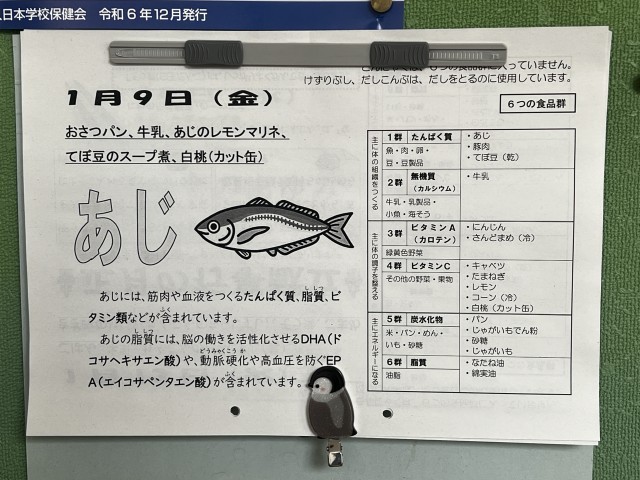 日本学校保健会 令和6年12月発行
入っていません。
けずりぶし、だしこんぶは、だしをとるのに使用しています。
1月9日（金）
おさつパン、牛乳、あじのレモンマリネ、
てぼ豆のスープ煮、白桃（カット缶）
あじ
あじには、筋肉や血液をつくるたんぱく質、脂質、ビ
タミン類などが含まれています。
あじの脂質には、脳の働きを活性化させるDHA（ド
コサヘキサエン酸）や、動脈硬化や高血圧を防ぐEP
A（エイコサペンタエン酸）が含まれています。
6つの食品群
主に体の組織をつくる
1群 たんぱく質
魚・肉・卵・
豆・豆製品
・あじ
・豚肉
・てぼ豆（乾）
2群 無機質
（カルシウム）
牛乳・乳製品・
小魚・海そう
・牛乳
主に体の調子を整える
3群 ビタミンA
（カロテン）
緑黄色野菜
・にんじん
・さんどまめ（冷）
4群 ビタミンC
その他の野菜・果物
・キャベツ
・たまねぎ
・レモン
・コーン（冷）
・白桃（カット缶）
主にエネルギーになる
5群 炭水化物
米・パン・めん・
いも・砂糖
・パン
・じゃがいもでん粉
・砂糖
・じゃがいも
6群 脂質
油脂
・なたね油
・綿実油